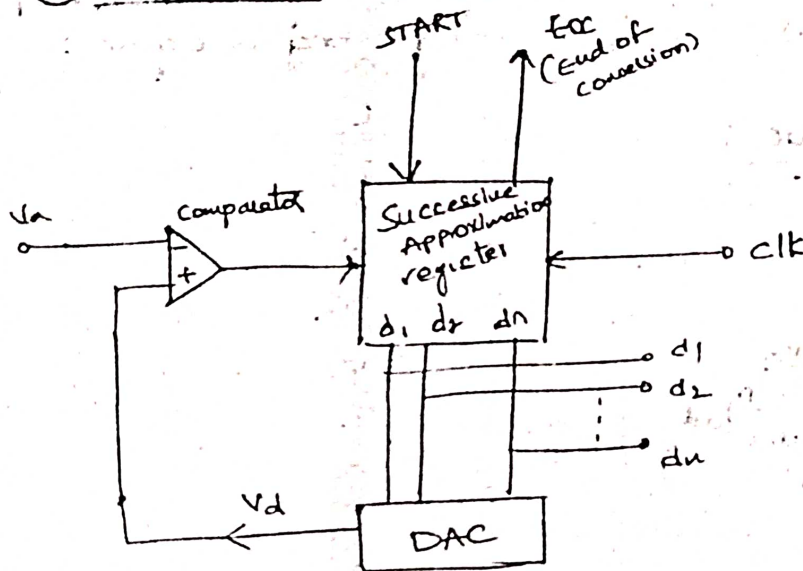 START
EOC
(End of
conversion)
Va
comparator
-
+
Successive
Approximation
register
clk
d1 d2 dn
d1
d2
dn
Vd
DAC